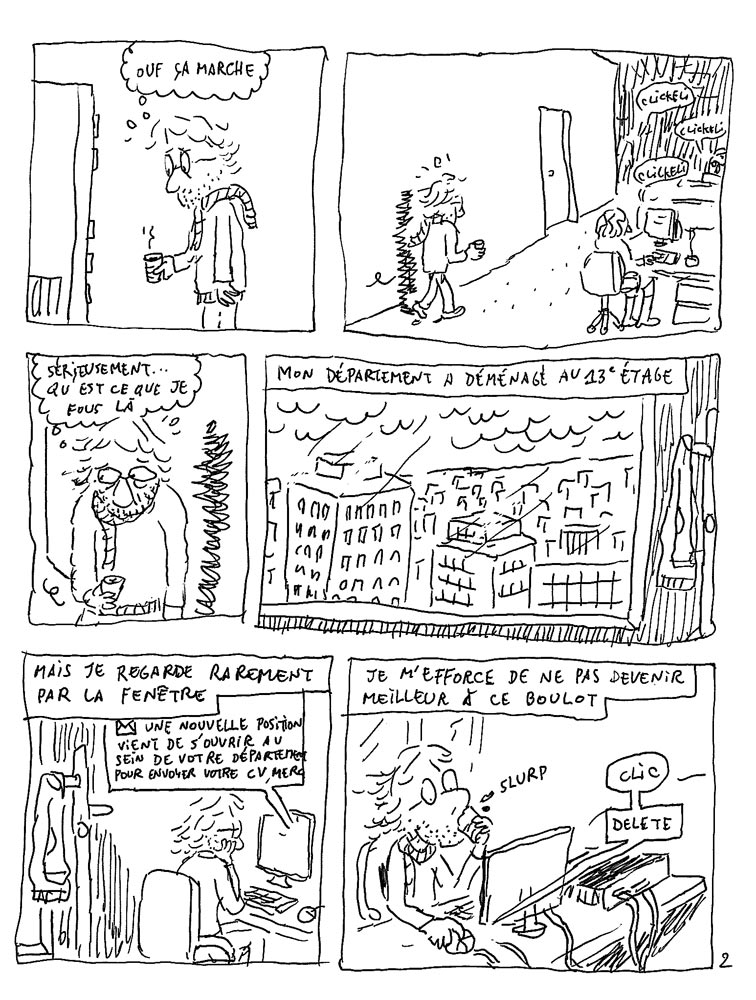 OUF ÇA MARCHE
CLICKELI
CLICKELI
CLICKELI
SÉRIEUSEMENT...
QU EST CE QUE JE
FOUS LÀ
MON DÉPARTEMENT A DÉMÉNAGÉ AU 13e ÉTAGE
MAIS JE REGARDE RAREMENT
PAR LA FENÊTRE
UNE NOUVELLE POSITION
VIENT DE S'OUVRIR AU
SEIN DE VOTRE DÉPARTEMEN
POUR ENVOYER VOTRE CV, MERC
JE M'EFFORCE DE NE PAS DEVENIR
MEILLEUR À CE BOULOT
SLURP
CLIC
DELETE
2